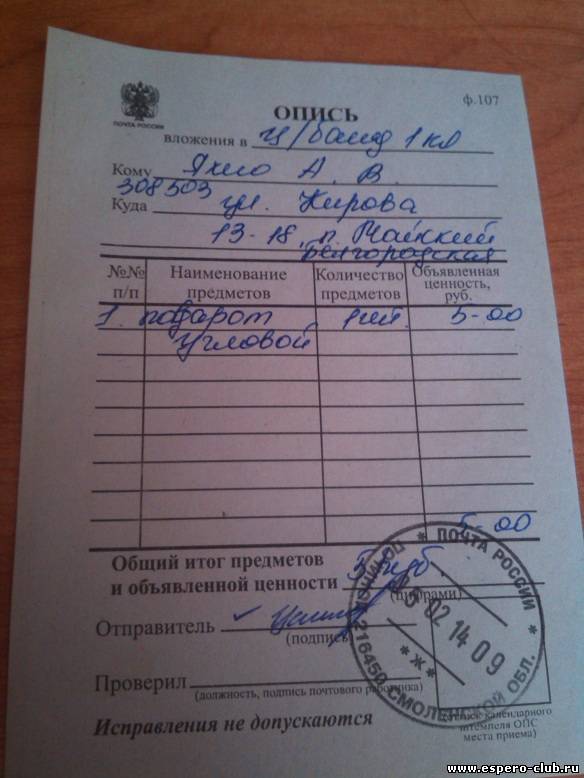 ПОЧТА РОССИИ
ф.107
ОПИСЬ
вложения в ц/банд 1 кл
Кому Яхно А. В.
308503
Куда ул. Кирова
13-18, п. Майский
Белгородская
№№ п/п Наименование предметов Количество предметов Объявленная ценность, руб.
1. поворот 1шт. 5-00
угловой
5-00
Общий итог предметов
и объявленной ценности 5 руб
(цифрами)
Отправитель
(подпись)
Проверил
(должность, подпись почтового работника)
Исправления не допускаются
календарного
штемпеля ОПС
места приема)
ПОЧТА РОССИИ
02 14 09
* Ж *
216450 СМОЛЕНСКОЙ ОБЛ.
www.espero-club.ru